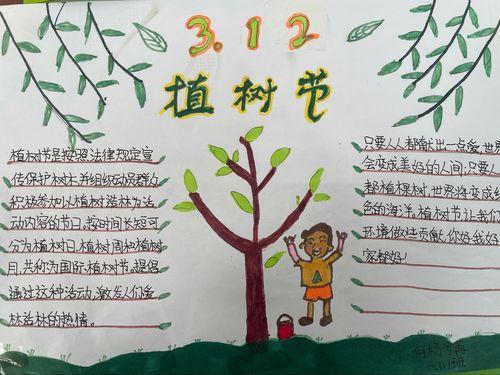 3.12
植树节
植树节是按照法律规定宣
传保护树木,并组织动员群众
积极参加以植树造林为活
动内容的节日,按时间长短可
分为植树日,植树周和植树
月,共称为国际植树节,提倡
通过这种活动,激发人们爱
林造林的热情。
只要人人都献出一点爱,世界
会变成美好的人间,只要人
都植棵树,世界将变成
色的海洋,植树节让我们
环境做出贡献,你好我好
家都好!
何杨
六.(1)班